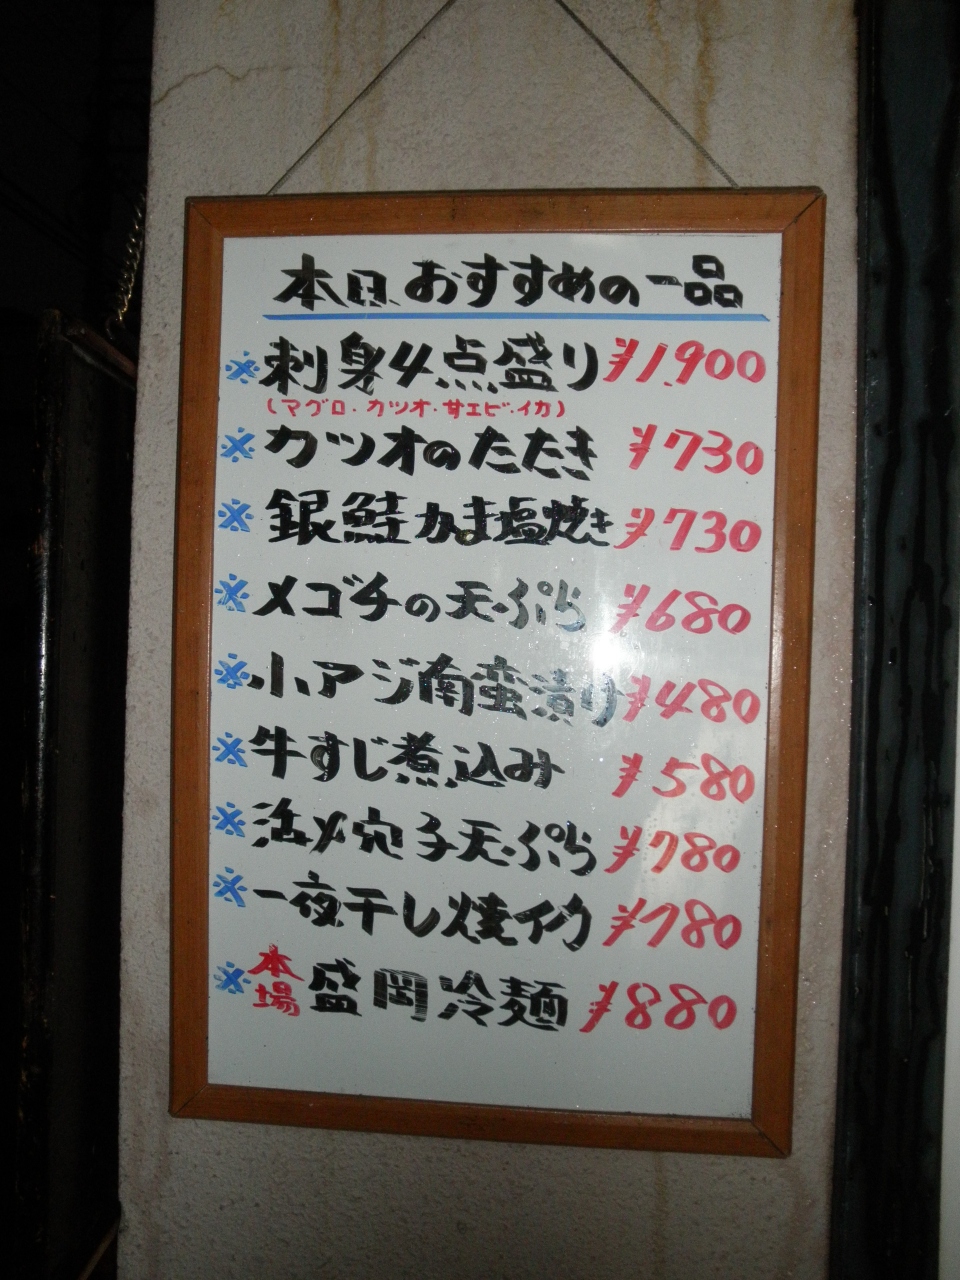 本日おすすめの一品
※刺身4点盛り ¥1,900
(マグロ・カツオ・甘エビ・イカ)
※カツオのたたき ¥730
※銀鮭かま塩焼き ¥730
※メゴチの天ぷら ¥680
※小アジ南蛮漬り ¥480
※牛すじ煮込み ¥580
※活〆穴子天ぷら ¥780
※一夜干し焼イカ ¥780
※本場盛岡冷麺 ¥880